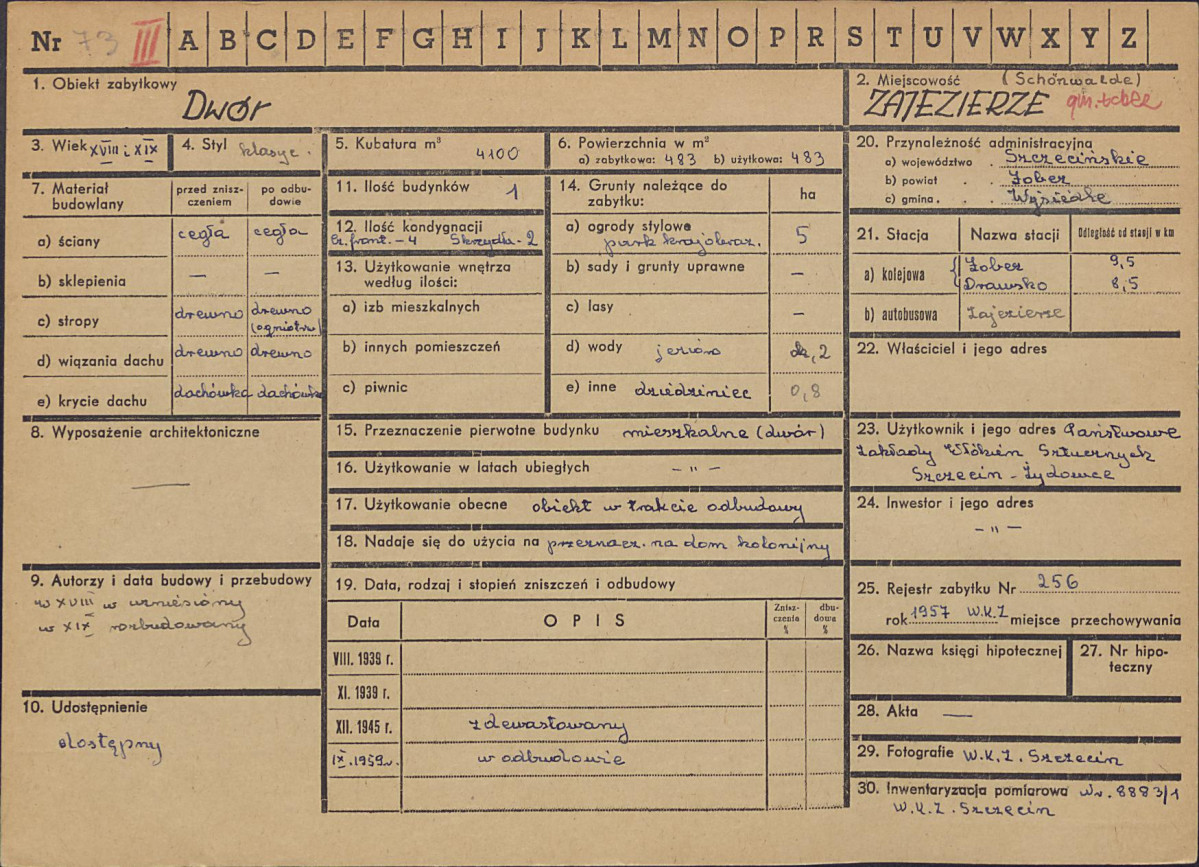 Nr 73 III A B C D E F G H I J K L M N O P R S T U V W X Y Z
1. Obiekt zabytkowy
Dwór
2. Miejscowość (Schönwalde)
ZAJEZIERZE gm. Łobez
3. Wiek XVIII i XIX
4. Styl klasyc.
5. Kubatura m³ 4100
6. Powierzchnia w m²
a) zabytkowa: 483 b) użytkowa: 483
7. Materiał budowlany
przed zniszczeniem
po odbudowie
a) ściany cegła cegła
b) sklepienia — —
c) stropy drewno drewno (ogniotrw)
d) wiązania dachu drewno drewno
e) krycie dachu dachówka dachówka
8. Wyposażenie architektoniczne
—
9. Autorzy i data budowy i przebudowy
w XVIII w wzniesiony
w XIX rozbudowany
10. Udostępnienie
dostępny
11. Ilość budynków 1
12. Ilość kondygnacji
Cz. front. – 4 Skrzydła – 2
13. Użytkowanie wnętrza
według ilości:
a) izb mieszkalnych
b) innych pomieszczeń
c) piwnic
14. Grunty należące do
zabytku:
ha
a) ogrody stylowe
park krajobraz. 5
b) sady i grunty uprawne —
c) lasy —
d) wody jezioro ,2
e) inne dziedziniec 0,8
15. Przeznaczenie pierwotne budynku mieszkalne (dwór)
16. Użytkowanie w latach ubiegłych – " –
17. Użytkowanie obecne obiekt w trakcie odbudowy
18. Nadaje się do użycia na przeznacz. na dom kolonijny
19. Data, rodzaj i stopień zniszczeń i odbudowy
Data
OPIS
Zniszczenie %
dbudowa %
VIII. 1939 r.
XI. 1939 r.
XII. 1945 r. zdewastowany
IX. 1959 r. w odbudowie
20. Przynależność administracyjna
a) województwo . Szczecińskie
b) powiat . . Łobez
c) gmina . . Wysiedle
21. Stacja
Nazwa stacji
Odległość od stacji w km
a) kolejowa Łobez 9,5
Drawsko 8,5
b) autobusowa Zajezierze
22. Właściciel i jego adres
23. Użytkownik i jego adres Państwowe
Zakłady Włókien Sztucznych
Szczecin – Żydowce
24. Inwestor i jego adres
– " –
25. Rejestr zabytku Nr 256
rok 1957 W.K.Z miejsce przechowywania
26. Nazwa księgi hipotecznej
27. Nr hipoteczny
28. Akta —
29. Fotografie W.K.Z. Szczecin
30. Inwentaryzacja pomiarowa Nr. 8883/1
W.K.Z. Szczecin